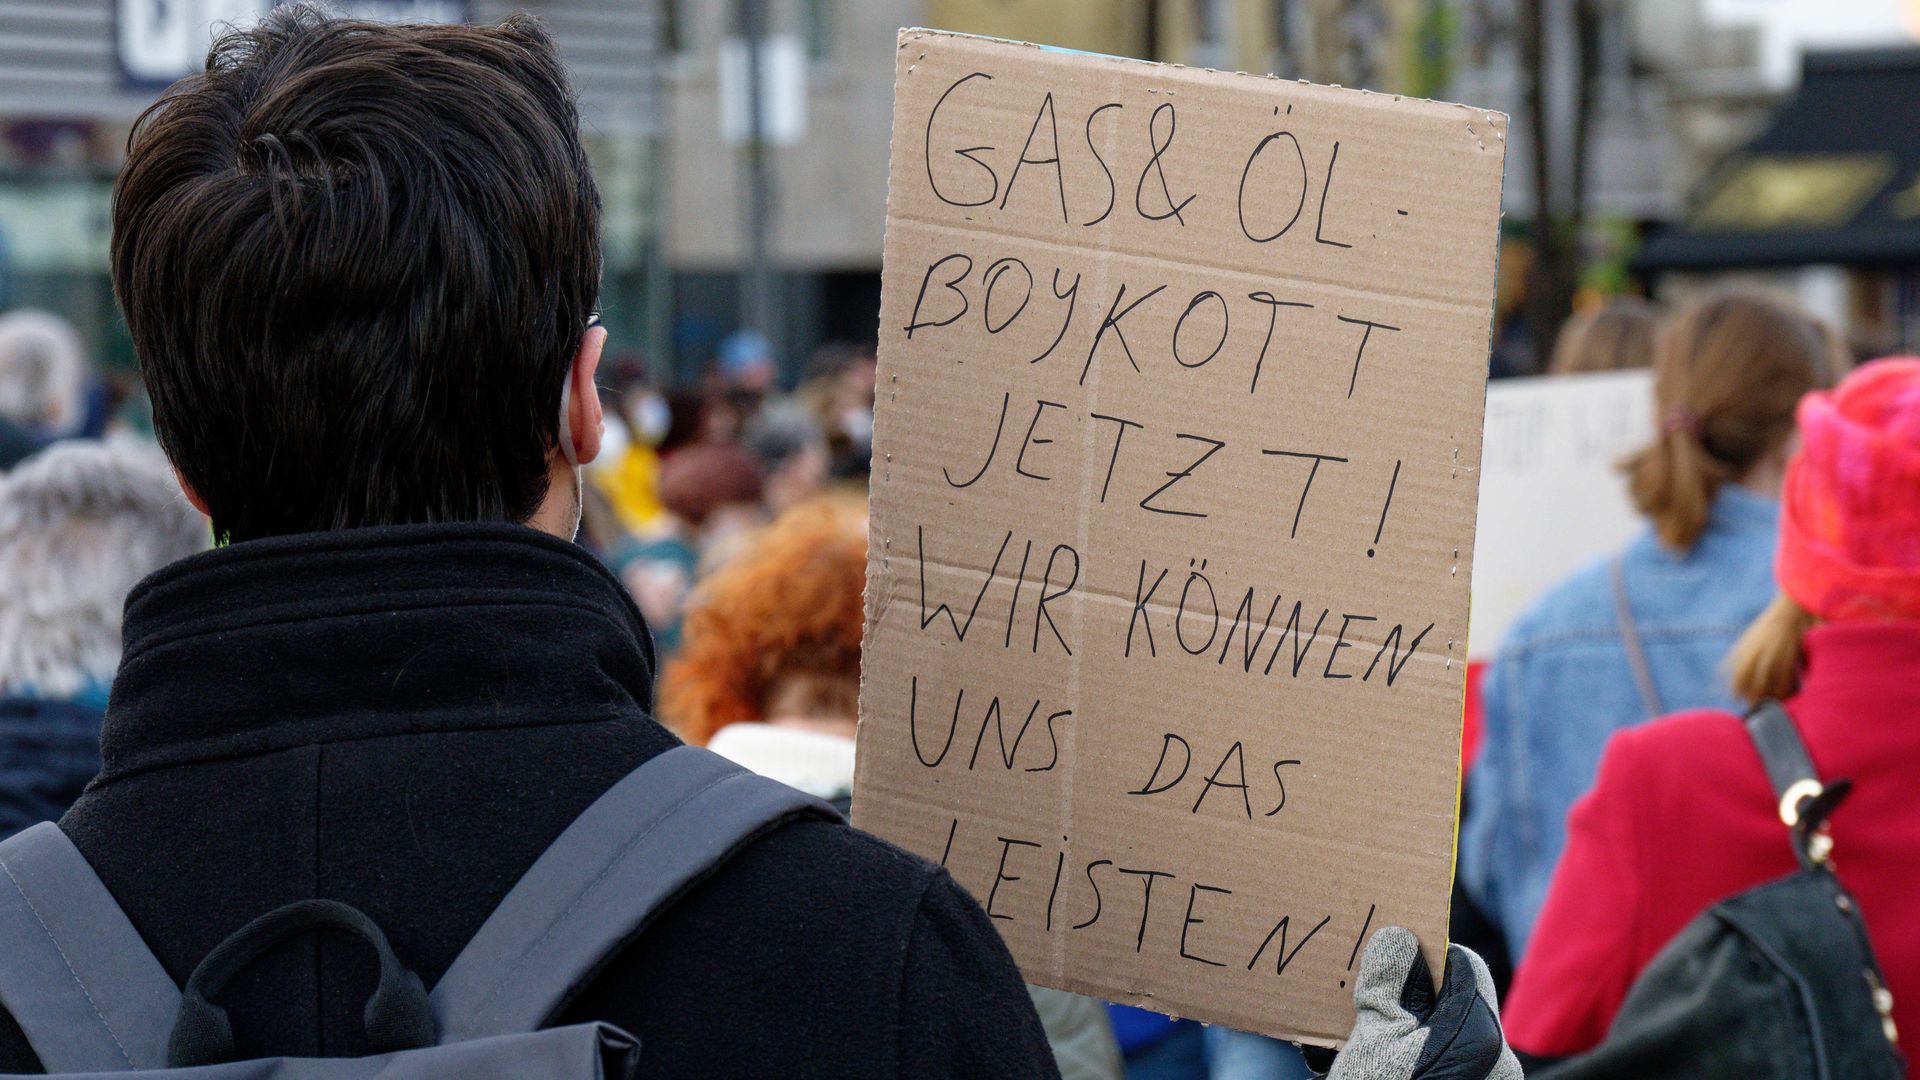 GAS & ÖL-
BOYKOTT
JETZT!
WIR KÖNNEN
UNS DAS
LEISTEN!